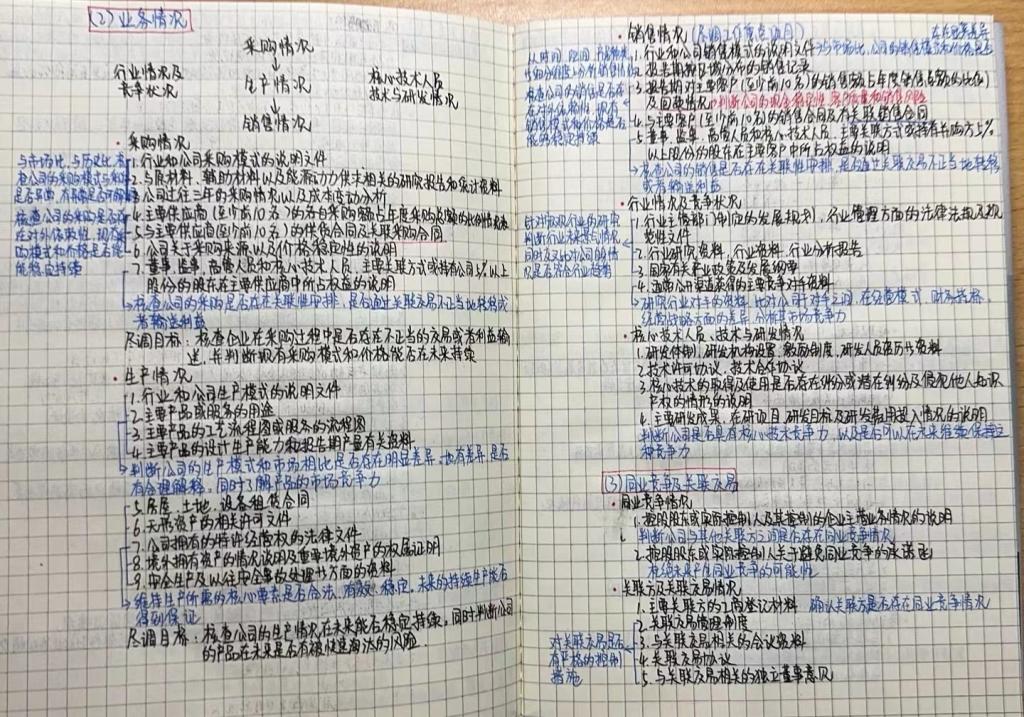 (2) 业务情况
采购情况
↓
行业情况及
竞争状况
生产情况
核心技术人员
技术与研发情况
↓
销售情况
· 采购情况
1. 行业和公司采购模式的说明文件
2. 与原材料、辅助材料以及能源动力供求相关的研究报告和统计资料
3. 公司过往三年的采购情况以及成本变动分析
4. 主要供应商(至少前10名)的各自采购额占年度采购总额的比例情况表
5. 与主要供应商(至少前10名)的供货合同及关联采购合同
6. 公司关于采购来源以及价格稳定性的说明
7. 董事、监事、高管人员和核心技术人员、主要关联方或持有公司5%以上
股份的股东在主要供应商中所占权益的说明
与市场比、与历史比
核查公司的采购是否存
在对外依赖性,现有采
购模式和价格是否能
能够持续
→核查公司的采购是否存在关联性安排,是否通过关联交易不正当地转移或
者输送利益
尽调目标:核查企业在采购过程中是否存在不正当的交易或者利益输
送,并判断现有采购模式和价格能否在未来持续
· 生产情况
1. 行业和公司生产模式的说明文件
2. 主要产品或服务的用途
3. 主要产品的工艺流程图或服务的流程图
4. 主要产品的设计生产能力和报告期产量有关资料
→判断公司的生产模式和市场相比是否存在明显差异,如有差异,是否
有合理解释,同时了解产品的市场竞争力
5. 房屋、土地、设备租赁合同
6. 无形资产的相关许可文件
7. 公司拥有的特许经营权的法律文件
8. 境外拥有资产的情况说明及重要境外资产的权属证明
9. 安全生产及以往安全事故处理等方面的资料
→维持生产所需的核心要素是否合法、有效、稳定,未来的持续生产能否
得到保证
尽调目标:核查公司的生产情况在未来能否稳定持续,同时判断公司
的产品在未来是否有被快速淘汰的风险.
· 销售情况(尽调工作重点项目)
存在明显差异
1. 行业和公司销售模式的说明文件→与市场比,公司的销售模式和价格是否
2. 报告期按区域分布的销售记录
3. 报告期对主要客户(至少前10名)的销售额占年度销售总额的比例
及回款情况→判断公司的现金稳定性、客户质量和销售风险
4. 与主要客户(至少前10名)的销售合同及有关联销售合同
5. 董事、监事、高管人员和核心技术人员、主要关联方或持有标购方5%
以上股份的股东在主要客户中所占权益的说明
核查公司的销售是否存在
对外依赖性,现有
销售模式和价格是否
能够稳定持续
→核查公司的销售是否存在关联性安排,是否通过关联交易不正当地转移
或者输送利益
· 行业情况及竞争状况
1. 行业主管部门制定的发展规划,行业管理方面的法律法规及规
范性文件
2. 行业研究资料、行业资料、行业分析报告
3. 国家有关产业政策及发展纲要
4. 通过公开渠道获得的主要竞争对手资料
针对获取行业的研究
判断行业未来景气情况
同时反对比公司的情
况是否符合行业趋势
→研究行业对手的资料,比对公司于对手之间,在经营模式、财务指标、
经营战略方面的差异,分析其市场竞争力
· 核心技术人员、技术与研发情况
1. 研发体制、研发机构设置、激励制度、研发人员资历等资料
2. 技术许可协议、技术合作协议
3. 核心技术的取得及使用是否存在纠纷或潜在纠纷及侵犯他人知识
产权的情形的说明
4. 主要研发成果、在研项目、研发目标及研发费用投入情况的说明
判断公司是否具有核心技术竞争力,以及是否可以在未来继续保持这
种竞争力
(3) 同业竞争及关联交易
· 同业竞争情况
1. 控股股东或实际控制人及其控制的企业主营业务情况的说明
判断公司与其他关联方之间是否存在同业竞争情况
2. 控股股东或实际控制人关于避免同业竞争的承诺函
杜绝未来产生同业竞争的可能性
· 关联方及关联交易情况
1. 主要关联方的工商登记材料 确认关联方是否存在同业竞争情况
2. 关联交易管理制度
3. 与关联交易相关的会议资料
4. 关联交易协议
5. 与关联交易相关的独立董事意见
对关联交易是否
有严格的控制
措施